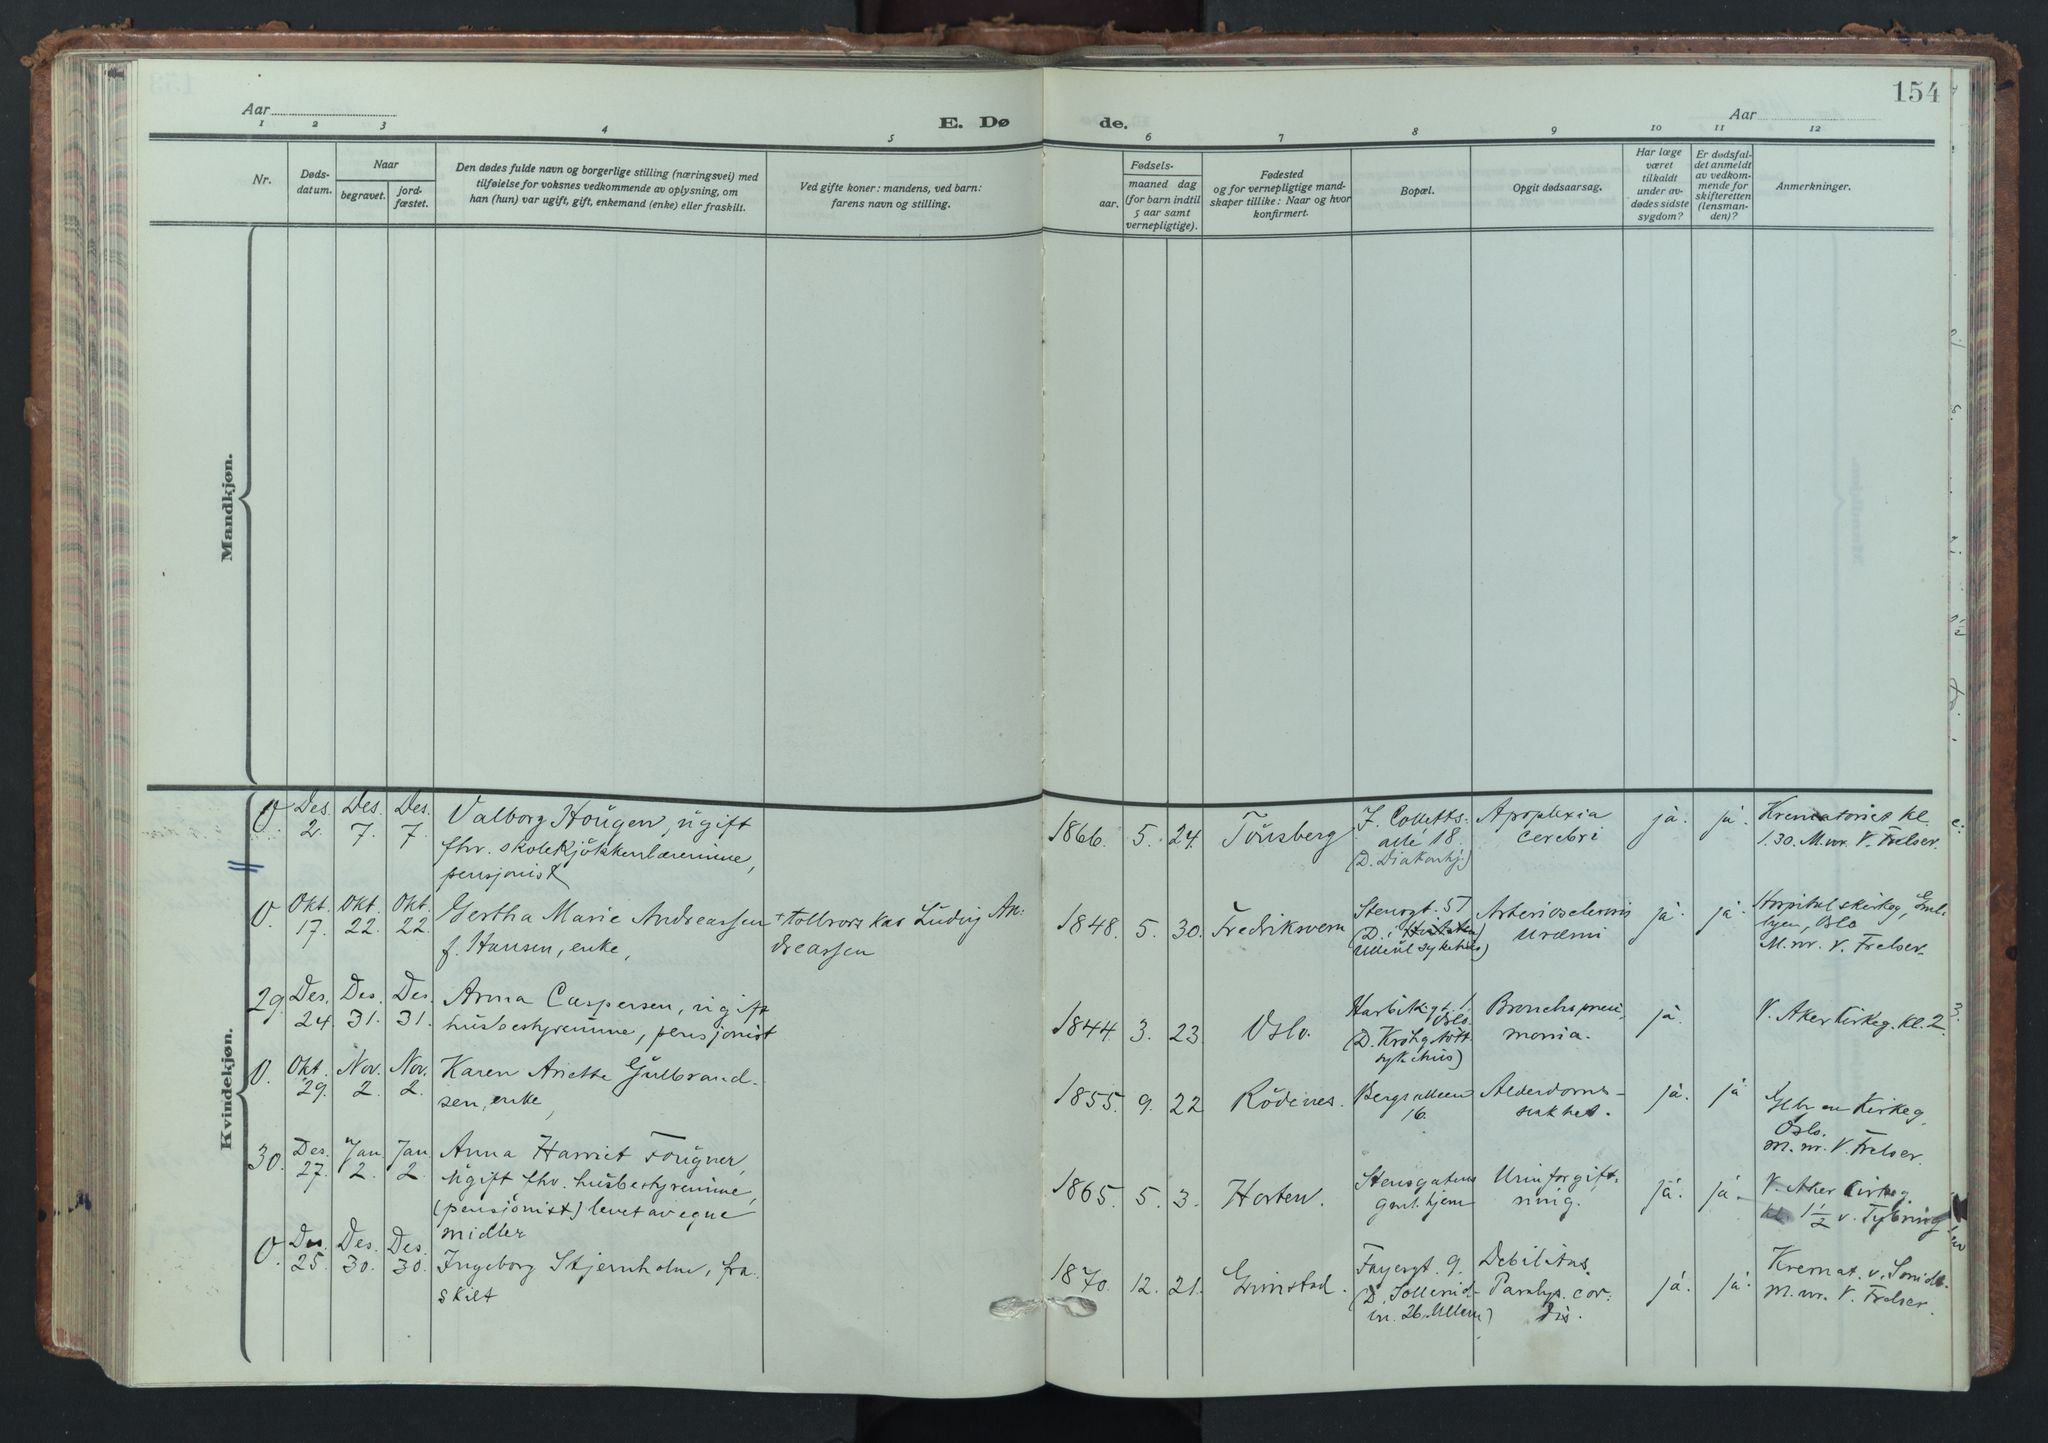 154
Aar
E. Dø
de.
Aar
1 2 3 4 5 6 7 8 9 10 11 12
Nr.
Døds-
datum.
Naar
begravet.
jord-
fæstet.
Den dødes fulde navn og borgerlige stilling (næringsvei) med
tilføielse for voksnes vedkommende av oplysning, om
han (hun) var ugift, gift, enkemand (enke) eller fraskilt.
Ved gifte koner: mandens, ved barn:
farens navn og stilling.
Fødsels-
aar.
maaned dag
(for barn indtil
5 aar samt
vernepligtige).
Fødested
og for vernepligtige mand-
skaper tillike: Naar og hvor
konfirmert.
Bopæl.
Opgit dødsaarsag.
Har læge
været
tilkaldt
under av-
dødes sidste
sygdom?
Er dødsfal-
det anmeldt
av vedkom-
mende for
skifteretten
(lensman-
den)?
Anmerkninger.
Mandkjøn.
Kvindekjøn.
0. Des. 2. Des. 7. Des. 7.
Valborg Hougen, ugift
fhv. skolekjøkkenlærerinne,
pensjonist
1866. 5. 24. Tönsberg
J. Colletts-
allé 18.
(D. Diakonhj.)
Apoplexia
cerebri
ja. ja.
Krematoriet kl.
1.30. M.nr. V. Frelser.
0. Okt. 17. Okt. 22. Okt. 22.
Gertha Marie Andreassen
f. Hansen, enke,
Ludvig An-
dreassen
1848. 5. 30. Fredriksvern
Stensgt. 57
(D. i
Ullevål sykehus)
Arteriosclerosis
Urœmi
ja. ja.
Hospitalskirkeg,
Oslo
M.nr. V. Frelser.
29. Des. 24. Des. 31. Des. 31.
Anna Caspersen, ugift
husbestyrerinne, pensjonist
1844. 3. 23. Oslo.
Oslo.
(D. Krohgstött.
sykehus)
Bronchopneu-
monia.
ja.
V. Aker Kirkeg. kl. 2.
0. Okt. 29. Nov. 2. Nov. 2.
Karen Anette Gulbrand-
sen, enke,
1855. 9. 22 Rödenes.
Bergsalleen
16.
Alderdoms-
svakhet.
ja. ja
Kirkeg,
Oslo.
M.nr. V. Frelser.
30. Des. 27. Jan. 2. Jan 2.
Anna Harriet Fougner,
ugift fhv. husbestyrerinne,
(pensjonist) levet av egne
midler
1865. 5. 3. Horten.
Stensgatens
gml. hjem
Urinforgift-
ning.
ja. ja.
V. Aker Kirkeg.
kl. 1 1/2 v. Tybring
0. Des. 25. Des. 30. Des. 30.
Ingeborg Stjernholm, fra-
skilt
1870. 12. 21. Grimstad.
Fayesgt. 9.
Debilitas.
Paralys. cor-
dis.
ja. ja.
Kremat. v. Smidt.
M.nr. V. Frelser.